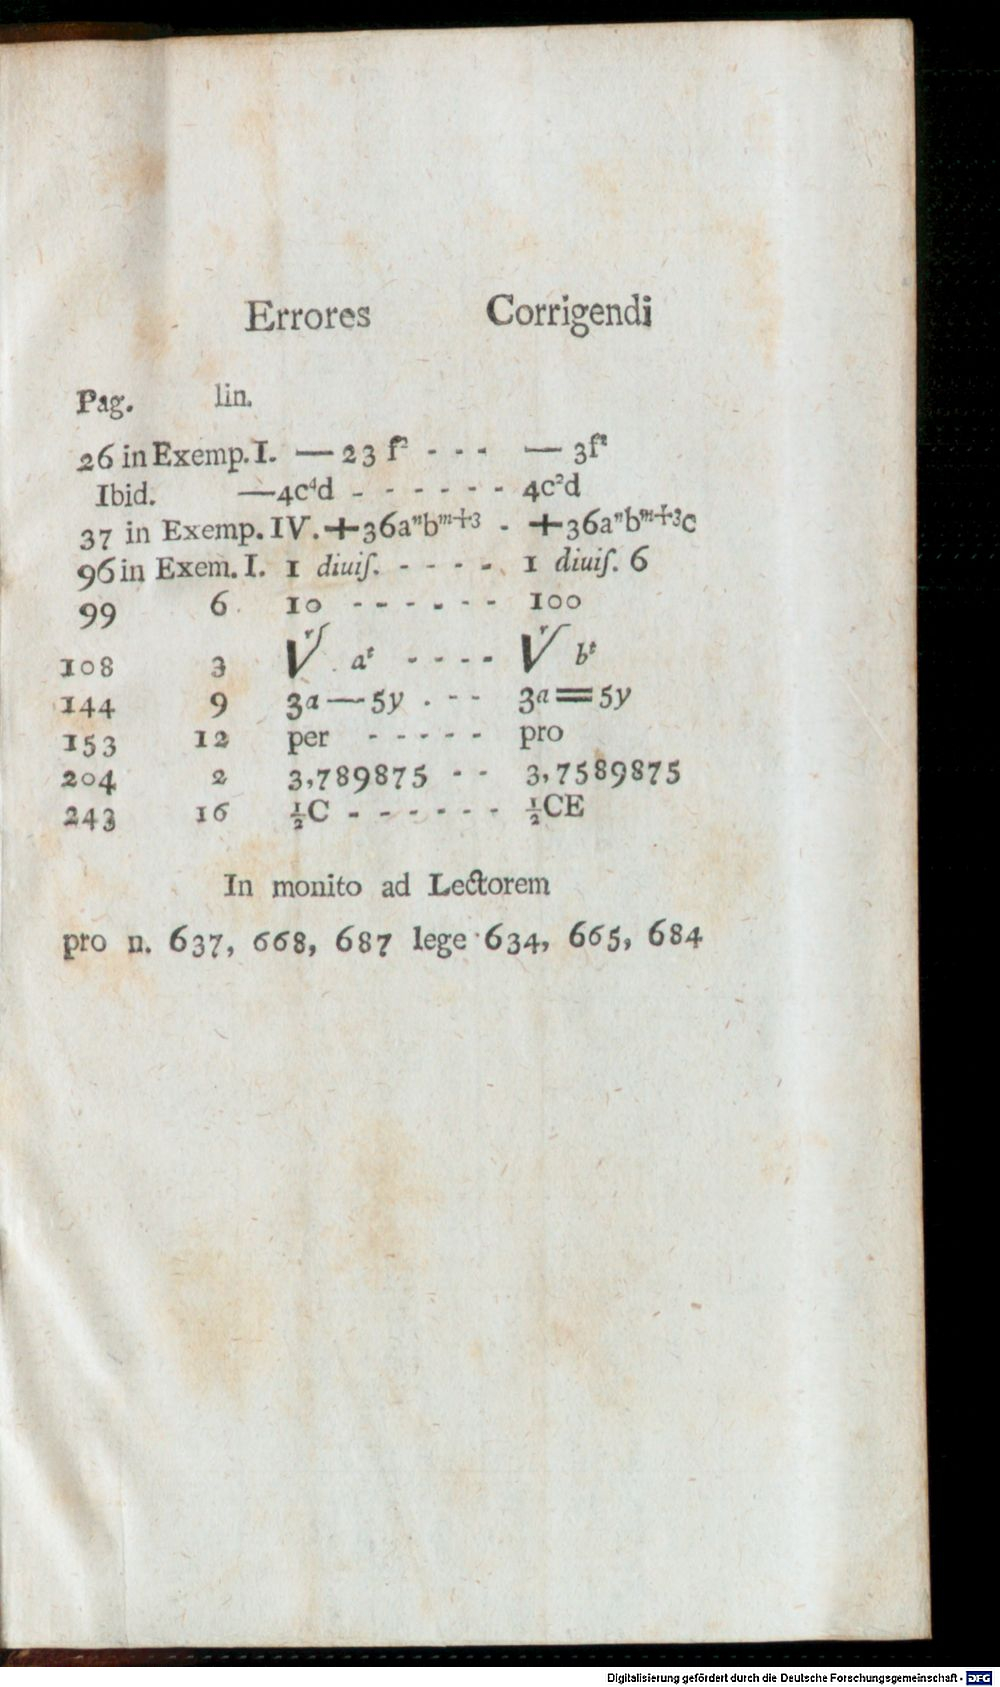 Errores Corrigendi
Pag. lin.
26 in Exemp. I. — 23 f² - - - — 3f²
Ibid. —4c⁴d - - - - - - 4c²d
37 in Exemp. IV. +36aⁿbᵐ⁺³ - +36aⁿbᵐ⁺³c
96 in Exem. I. 1 diuiſ. - - - - 1 diuiſ. 6
99 6 10 - - - - - - 100
108 3 √ʳˢ aᵗ - - - - √ʳ bᵗ
144 9 3a—5y . - - 3a=5y
153 12 per - - - - - pro
204 2 3,789875 - - 3,7589875
243 16 ½C - - - - - - ½CE
In monito ad Lectorem
pro n. 637, 668, 687 lege 634, 665, 684
Digitalisierung gefördert durch die Deutsche Forschungsgemeinschaft - DFG